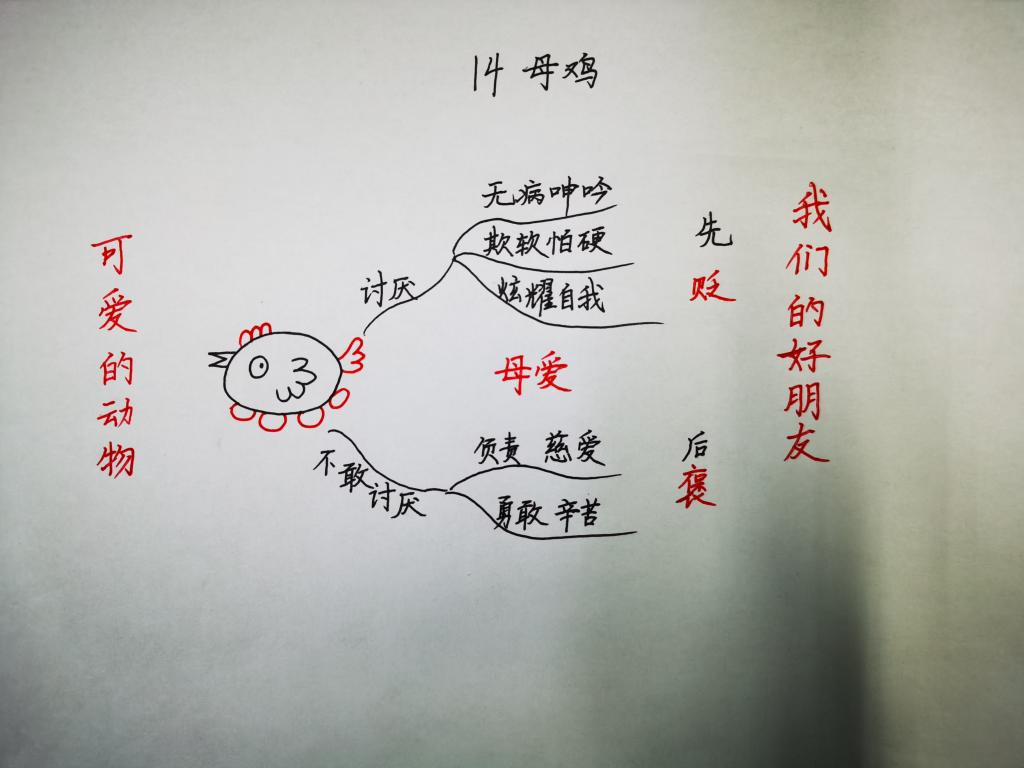 14 母鸡
可爱的动物
讨厌
无病呻吟
欺软怕硬
炫耀自我
先
贬
母爱
不敢讨厌
负责 慈爱
勇敢 辛苦
后
褒
我们的好朋友